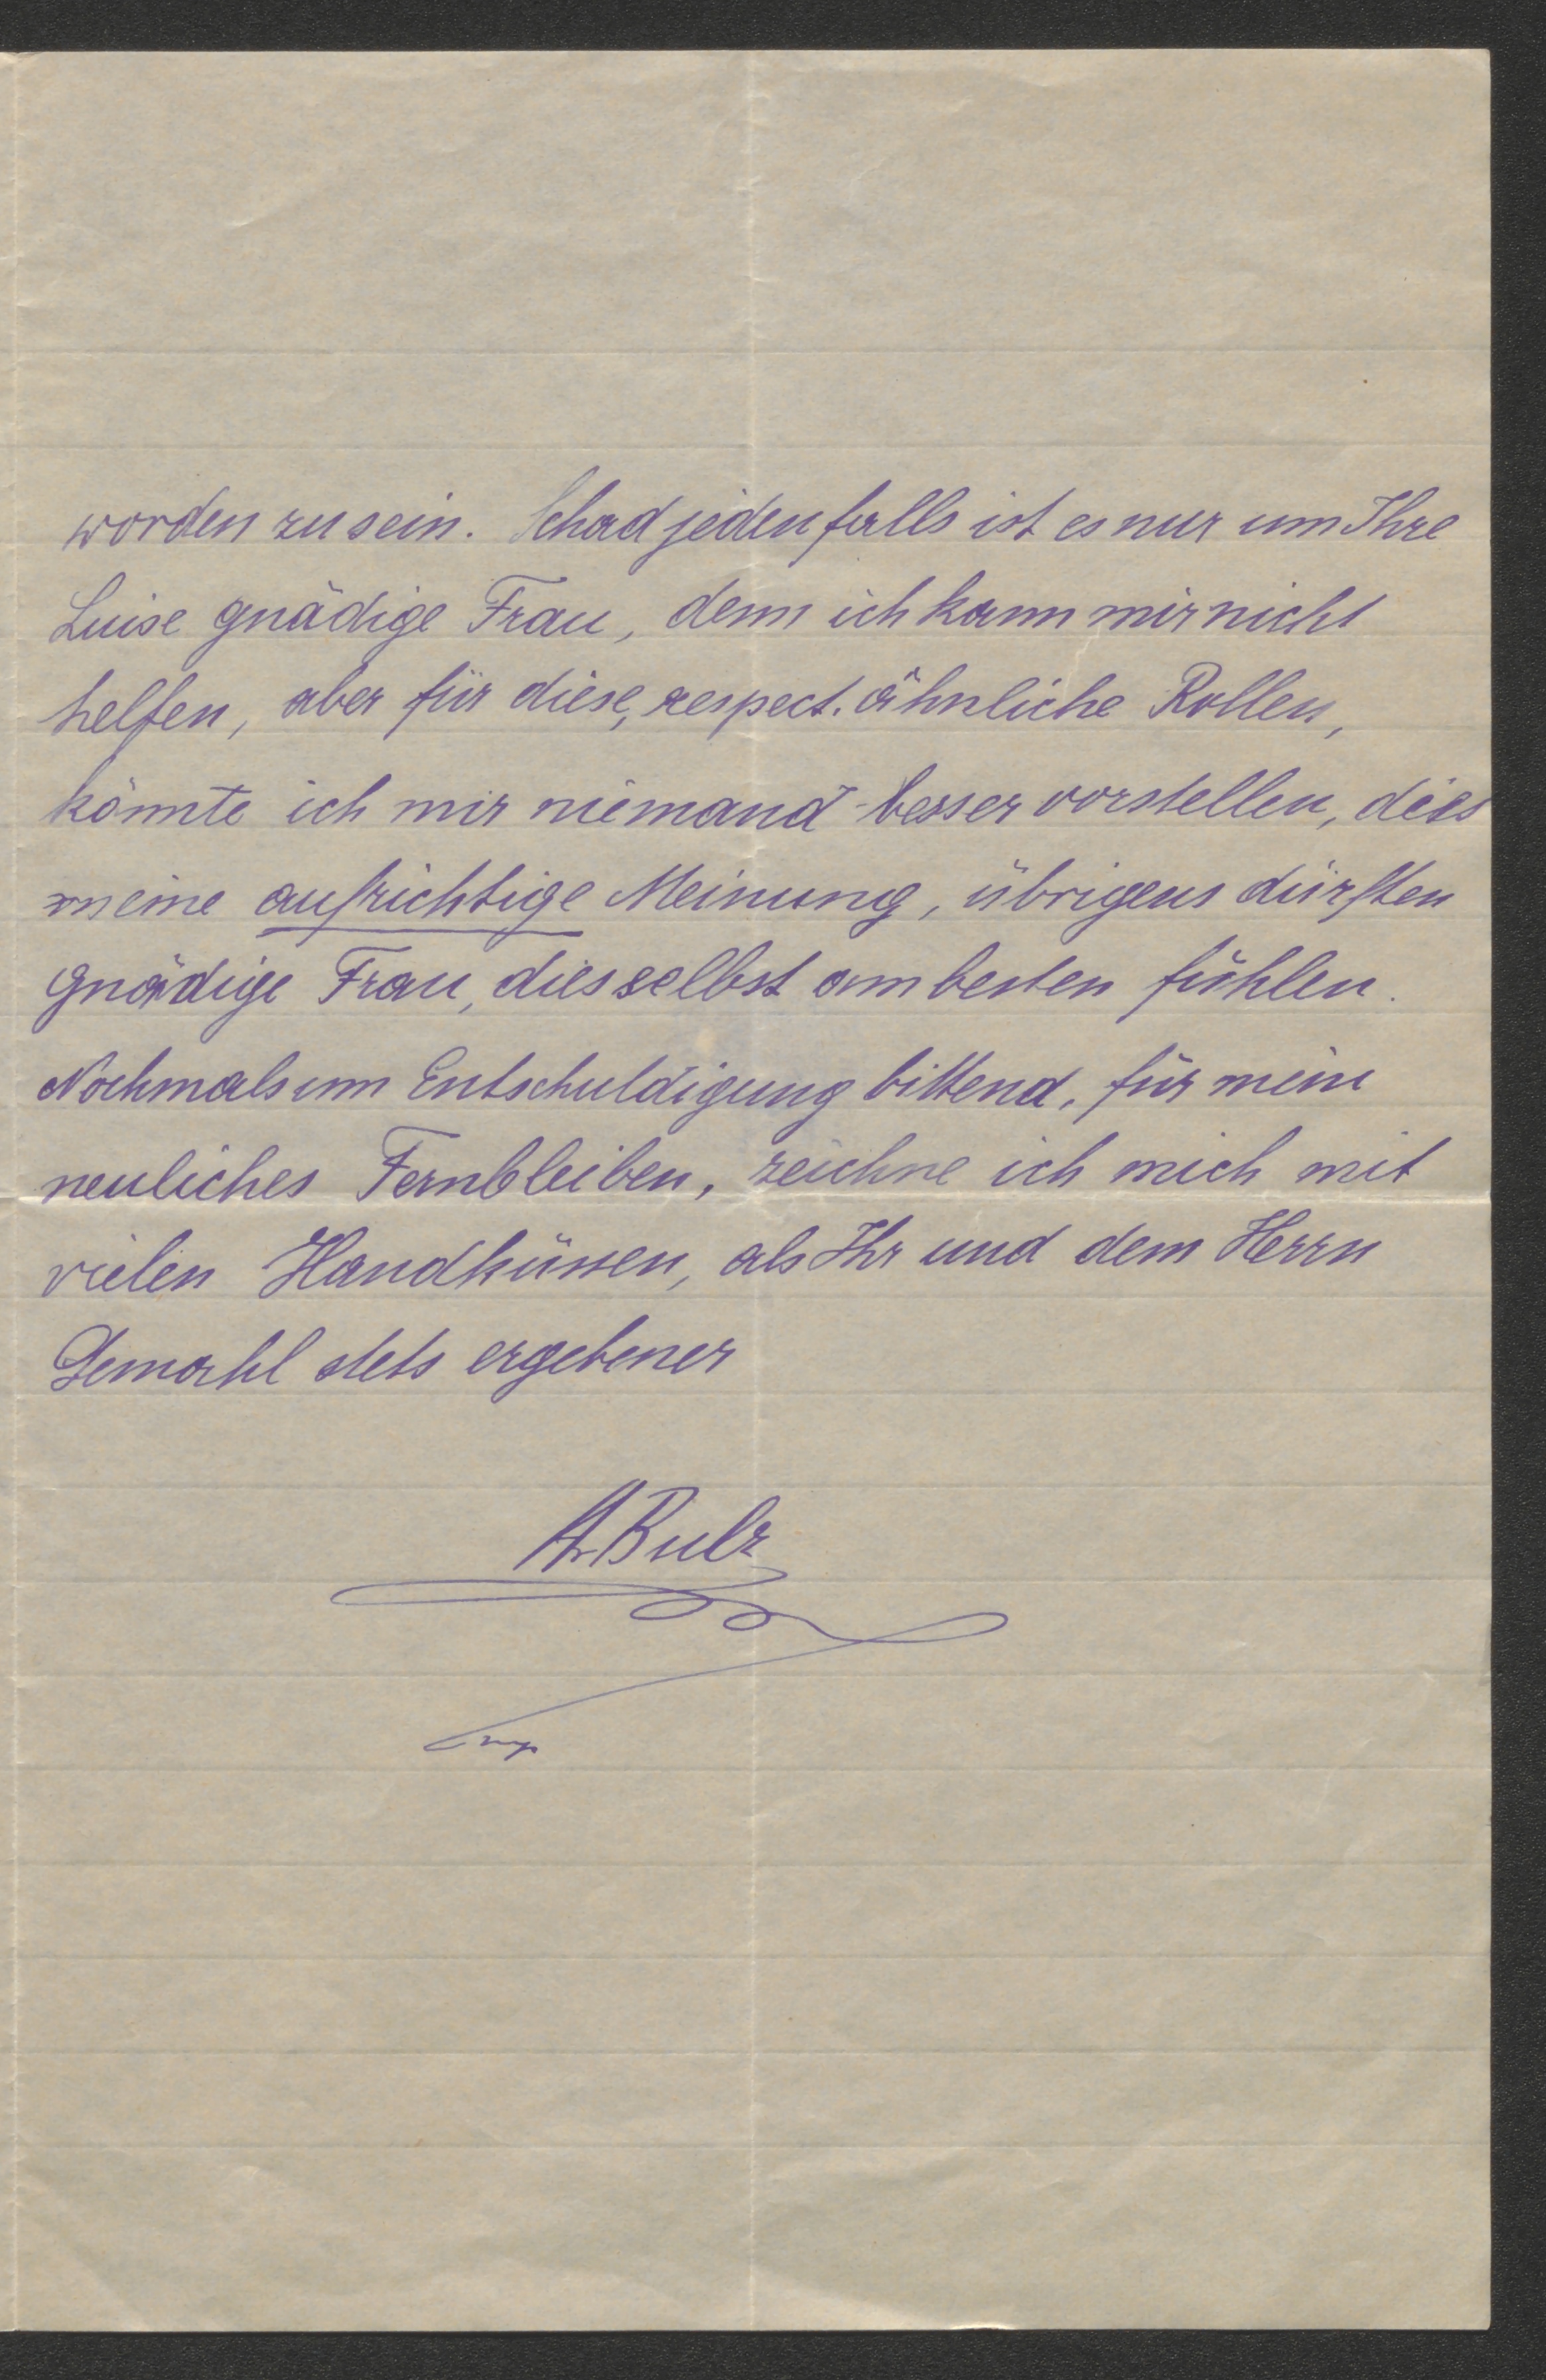 worden zu sein. Schad jedenfalls ist es nur um Ihre
Luise gnädige Frau, denn ich kann mir nicht
helfen, aber für diese, respect. ähnliche Rollen,
könnte ich mir niemand besser vorstellen, dies
meine aufrichtige Meinung, übrigens dürften
gnädige Frau, dies selbst am besten fühlen.
Nochmals um Entschuldigung bittend, für mein
neuliches Fernbleiben, zeichne ich mich mit
vielen Handküssen, als Ihr und dem Herrn
Gemahl stets ergebener